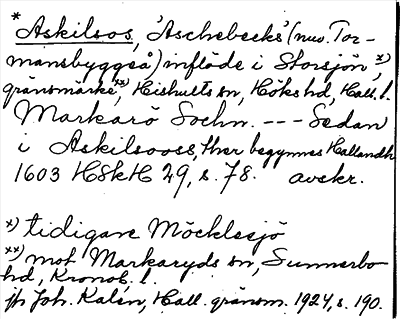 *Askilsos, 'Aschebecks' (nuv. Tor-
mansbyggså) inflöde i Storsjön, x)
gränsmärke, xx) Hishults sn, Höks hd, Hall. l.
Markarö Sochn. --- Sedan
i Askilsooss, ther begynnes Hallandh
1603 HSkH 29, s. 78. avskr.
x) tidigare Möcklesjö
xx) mot Markaryds sn, Sunnerbo
hd, Kronob. l.
jfr Joh. Kalén, Hall. gränsm. 1924, s. 190.